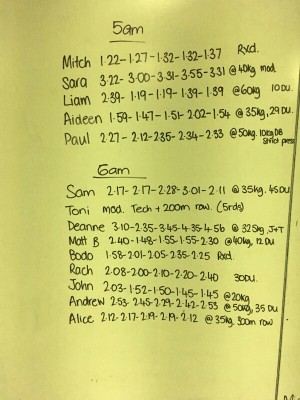 5am
Mitch 1.22-1.27-1.32-1.32-1.37 Rxd.
Sara 3.22-3.00-3.31-3.55-3.31 @40kg mod.
Liam 2.39-1.19-1.19-1.39-1.39 @60kg 10DU.
Aideen 1.59-1.47-1.51-2.02-1.54 @35kg, 29DU.
Paul 2.27-2.12-2.35-2.34-2.33 @50kg. 10kg DB Strict press
6am
Sam 2.17-2.17-2.28-3.01-2.11 @35kg. 45DU
Toni mod. Tech + 200m row. (5rds)
Deanne 3.10-2.35-3.45-4.35-4.56 @32.5kg, J+T
Matt B 2.40-1.48-1.55-1.55-2.30 @40kg, 12 DU
Bodo 1.58-2.01-2.05-2.35-2.25 Rxd.
Rach 2.08-2.00-2.10-2.20-2.40 30DU.
John 2.03-1.52-1.50-1.45-1.45 @20kg
Andrew 2.53-2.45-2.29-2.42-2.53 @50kg, 35 DU
Alice 2.12-2.17-2.19-2.19-2.12 @35kg. 300m row